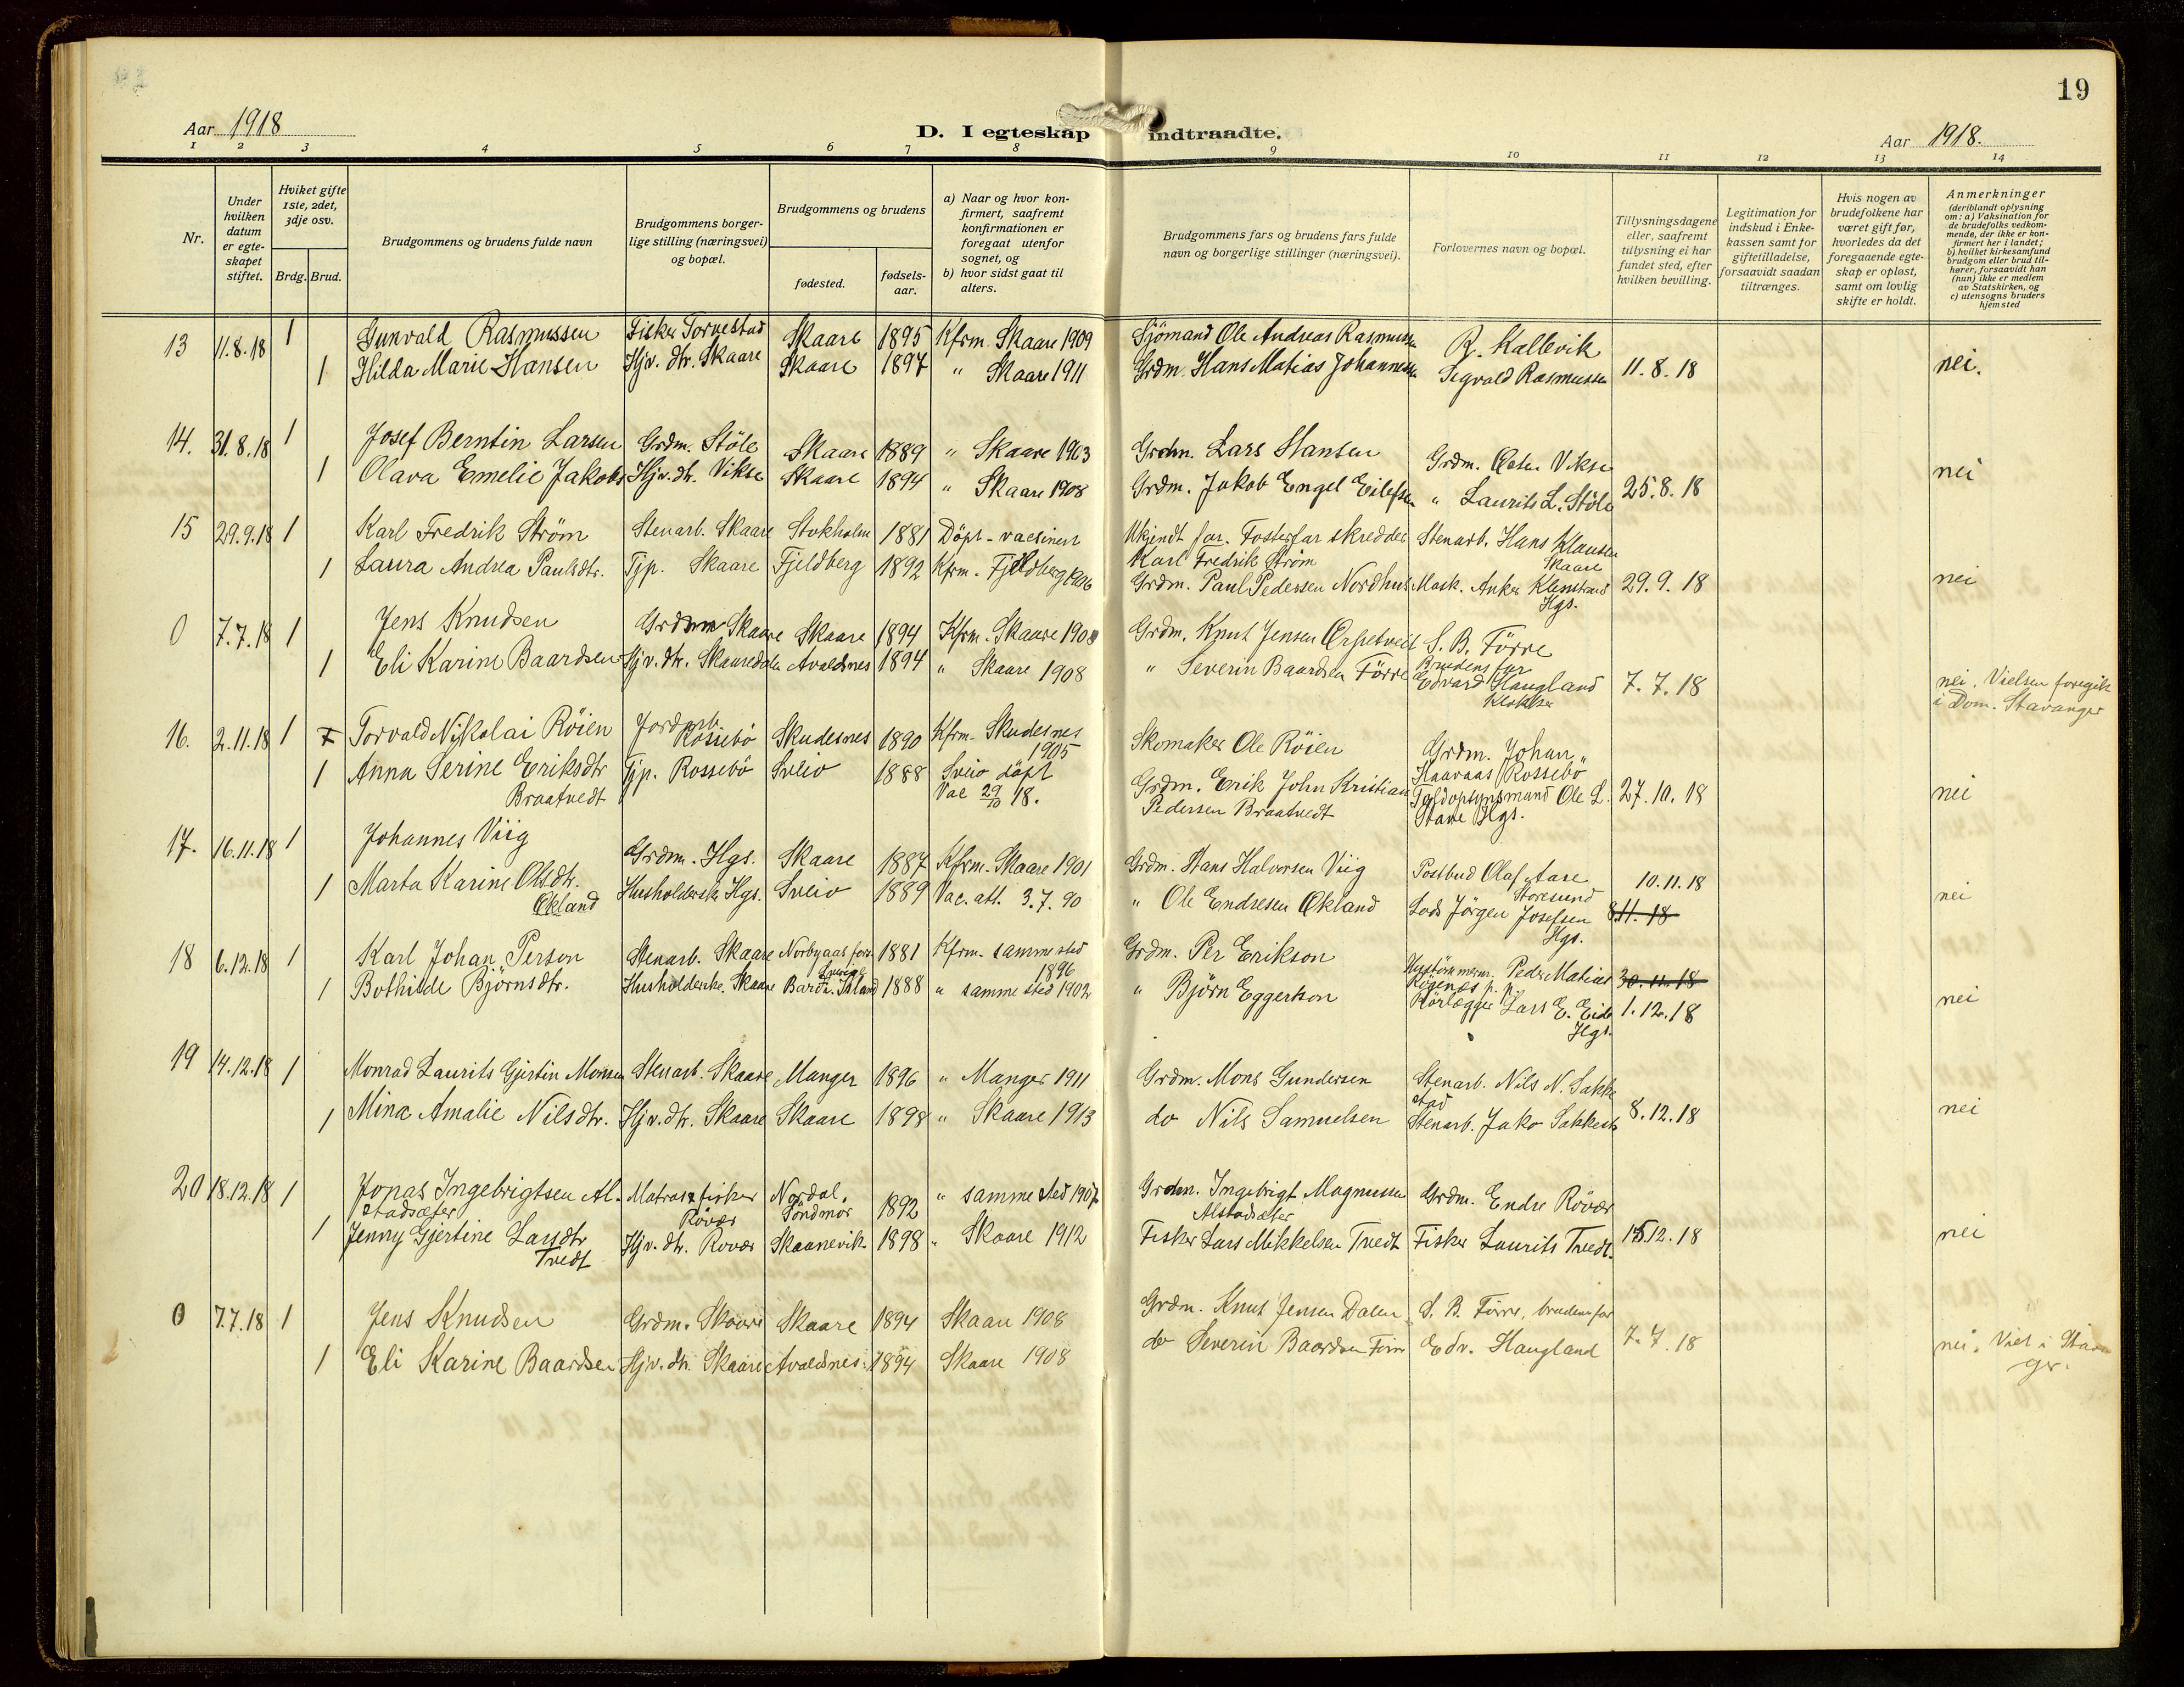 19
Aar 1918
D. I egteskap indtraadte.
Aar 1918.
1 2 3 4 5 6 7 8 9 10 11 12 13 14
Nr.
Under hvilken datum er egteskapet stiftet.
Hviket gifte 1ste, 2det, 3dje osv.
Brdg. Brud.
Brudgommens og brudens fulde navn
Brudgommens borgerlige stilling (næringsvei) og bopæl.
Brudgommens og brudens
fødested.
fødselsaar.
a) Naar og hvor konfirmert, saafremt konfirmationen er foregaat utenfor sognet, og
b) hvor sidst gaat til alters.
Brudgommens fars og brudens fars fulde navn og borgerlige stillinger (næringsvei).
Forlovernes navn og bopæl.
Tillysningsdagene eller, saafremt tillysning ei har fundet sted, efter hvilken bevilling.
Legitimation for indskud i Enkekassen samt for giftetilladelse, forsaavidt saadan tiltrænges.
Hvis nogen av brudefolkene har været gift før, hvorledes da det foregaaende egteskap er opløst, samt om lovlig skifte er holdt.
Anmerkninger
(deriblandt oplysning om: a) Vaksination for de brudefolks vedkommende, der ikke er konfirmert her i landet; b) hvilket kirkesamfund brudgom eller brud tilhører, forsaavidt han (hun) ikke er medlem av Statskirken, og c) utensogns bruders hjemsted
13 11.8.18 1 Gunvald Rasmussen Fisker Torvestad Skaare 1895 Kfrm. Skaare 1909 Sjömand Ole Andreas Rasmussen R. Kallevik
1 Hilda Marie Hansen Hjv. dtr. Skaare Skaare 1897 " Skaare 1911 Grdm. Hans Matias Johannessen Sigvald Rasmussen 11.8.18 nei.
14. 31.8.18 1 Josef Berntin Larsen Grdm. Stöle Skaare 1889 " Skaare 1903 Grdm. Lars Hansen Grdm. Vikse
1 Olava Emelie Jakobs Hjv. dtr. Vikse Skaare 1894 " Skaare 1908 Grdm. Jakob Engel Eilefsen " Laurits L. Stöle 25.8.18 nei
15 29.9.18 1 Karl Fredrik Ström Stenarb. Skaare Stokholm 1881 Döpt - vacsinert Ukjendt far. Fosterfar skredder Karl Fredrik Ström Stenarb. Hans Klausen Skaare
1 Laura Andrea Paulsdtr. Tjp. Skaare Fjeldberg 1892 Kfrm. Fjeldberg 1906 Grdm. Paul Pedersen Nordhus Mask. Anker Hgs. 29.9.18 nei
0 7.7.18 1 Jens Knudsen Grdm Skaare Skaare 1894 Kfrm. Skaare 1908 Grdm. Knut Jensen S. B. Förre Brudens far
1 Eli Karine Baardsen Hjv. dtr. Skaaredalen Avaldsnes 1894 " Skaare 1908 " Severin Baardsen Förre Edvard Haugland Klokker 7.7.18 nei. Vielsen foregik i Dom. Stavanger
16. 2.11.18 1 Torvald Nikolai Röien Jordarb. Rossebö Skudesnes 1890 Kfrm. Skudesnes 1905 Skomaker Ole Röien Grdm. Johan Haavaas Rossebö
1 Anna Serine Eriksdtr Braatvedt Tjp. Rossebö Sveio 1888 Sveio döpt Vac 29/10 18. Grdm. Erik John Kristian Pedersen Braatvedt Toldopsynsmand Ole L. Stave Hgs. 27.10.18 nei
17. 16.11.18 1 Johannes Viig Grdm. Hgs. Skaare 1887 Kfrm. Skaare 1901 Grdm. Hans Halvorsen Viig Postbud Olaf Aase Storesund 10.11.18
1 Marta Karine Olsdtr. Økland Husholderske Hgs. Sveio 1889 Vac. att. 3.7.90 " Ole Endresen Økland Lods Jörgen Josefsen Hgs. 8.11.18 nei
18 6.12.18 1 Karl Johan Person Stenarb. Skaare Norbyaas fors. Sverige 1881 Kfrm. samme sted 1896 Grdm. Per Erikson Peder Matias 30.11.18
1 Bothilde Björnsdtr. Husholderske. Skaare Bardr. Island 1888 " samme sted 1902 " Björn Eggertson Rörlægger Lars E. Eide Hgs. 1.12.18 nei
19 14.12.18 1 Monrad Laurits Gjertin Monsen Stenarb. Skaare Manger 1896 " Manger 1911 Grdm. Mons Gundersen Stenarb. Nils N. Sakkestad
1 Mina Amalie Nilsdtr. Hjv. dtr. Skaare Skaare 1898 " Skaare 1913 do Nils Samuelsen Stenarb. Jako Sakkest 8.12.18 nei
20 18.12.18 1 Jonas Ingebrigtsen Alstadsæter Matros & fisker Rövær Nordal. Söndmör 1892 " samme sted 1907 Grdm. Ingebrigt Magnussen Alstadsæter Grdm. Endre Rövær
1 Jenny Gjertine Larsdtr Tvedt Hjv. dtr. Rovær Skaanevik 1898 " Skaare 1912 Fisker Lars Mikkelsen Tvedt Fisker Laurits Tvedt. 15.12.18 nei
0 7.7.18 1 Jens Knudsen Grdm. Skaare Skaare 1894 Skaare 1908 Grdm. Knut Jensen Dalen S. B. Förre, brudens far
1 Eli Karine Baardsen Hjv. dtr. Skaare Avaldsnes. 1894 Skaare 1908 do Severin Baardsen Förre Edv. Haugland 7.7.18 nei. Viet i Stavanger.